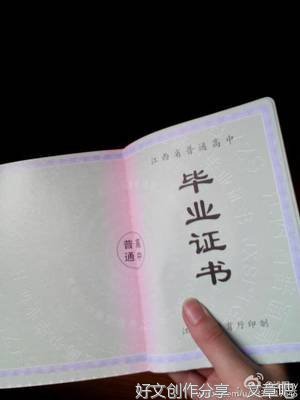 江西省普通高中
毕业证书
普通
高中
好文创作分享，文章吧